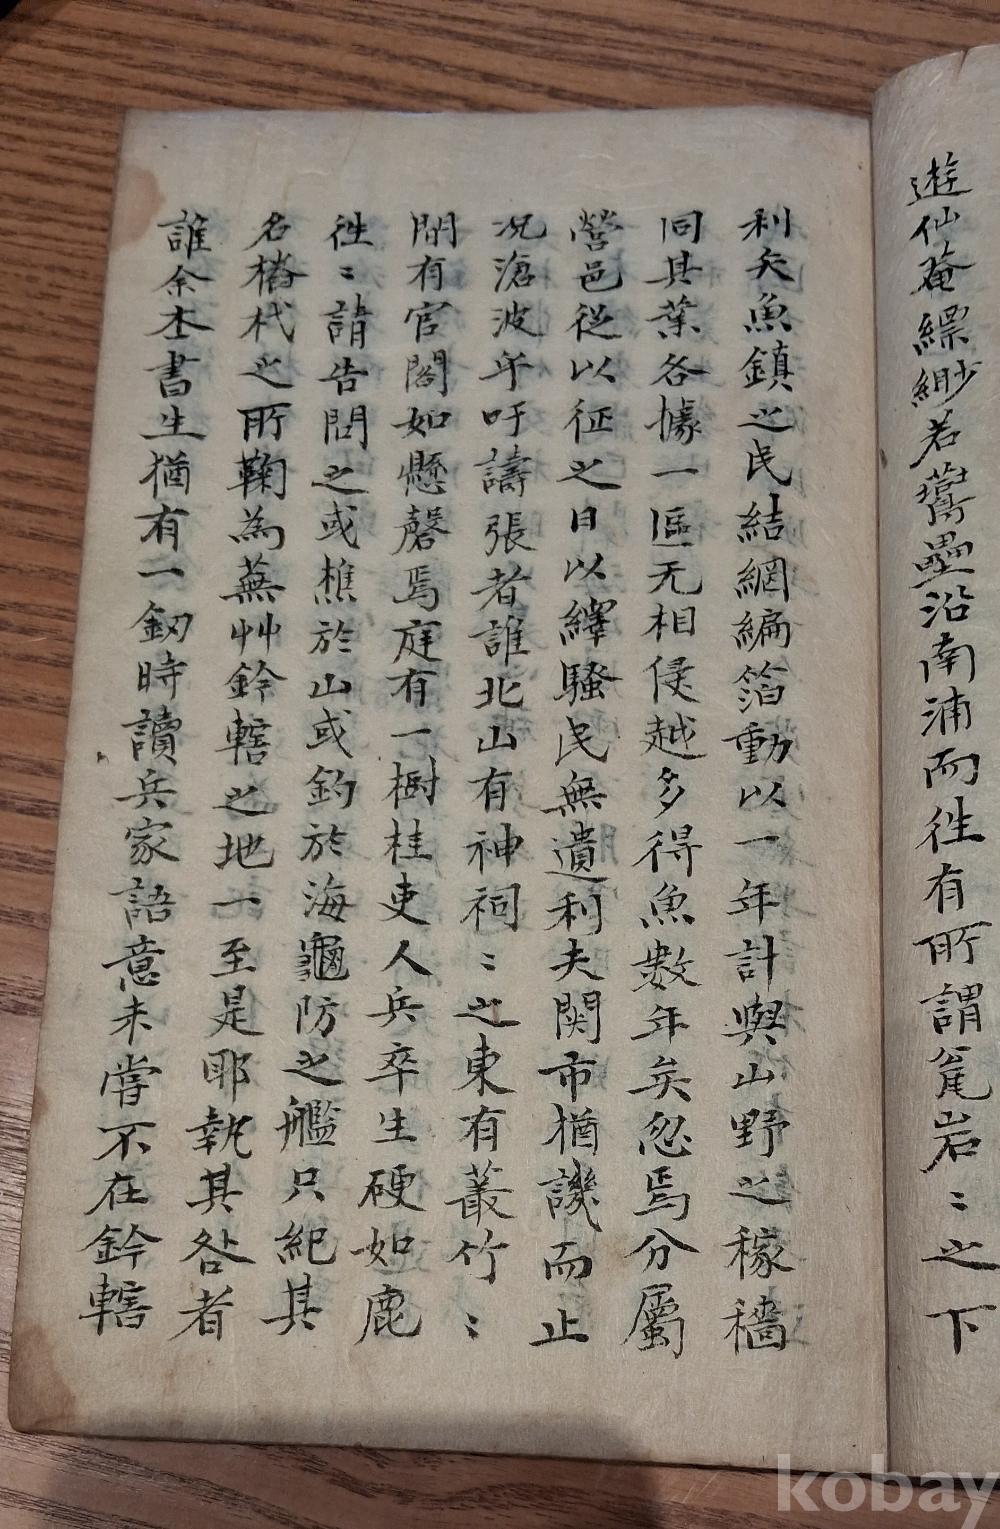 遊仙菴縹緲若舊壘沿南浦而徃有所謂窀岩〻之下
利矣魚鎮之民結網編箔動以一年計與山野之稼穡
同其業各據一區无相侵越多得魚數年矣忽焉分屬
營邑從以征之日以繹騷民無遺利夫関市猶譏而止
况滄波乎吁譸張者誰北山有神祠〻之東有叢竹〻
間有官閣如懸磬焉庭有一樹桂吏人兵卒生硬如鹿
徃〻請告問之或樵於山或釣於海龜防之艦只紀其
名楯杙之所鞠為蕪艸鈐轄之地一至是耶執其咎者
誰余本書生猶有一釰時讀兵家語意未甞不在鈐轄
kobay